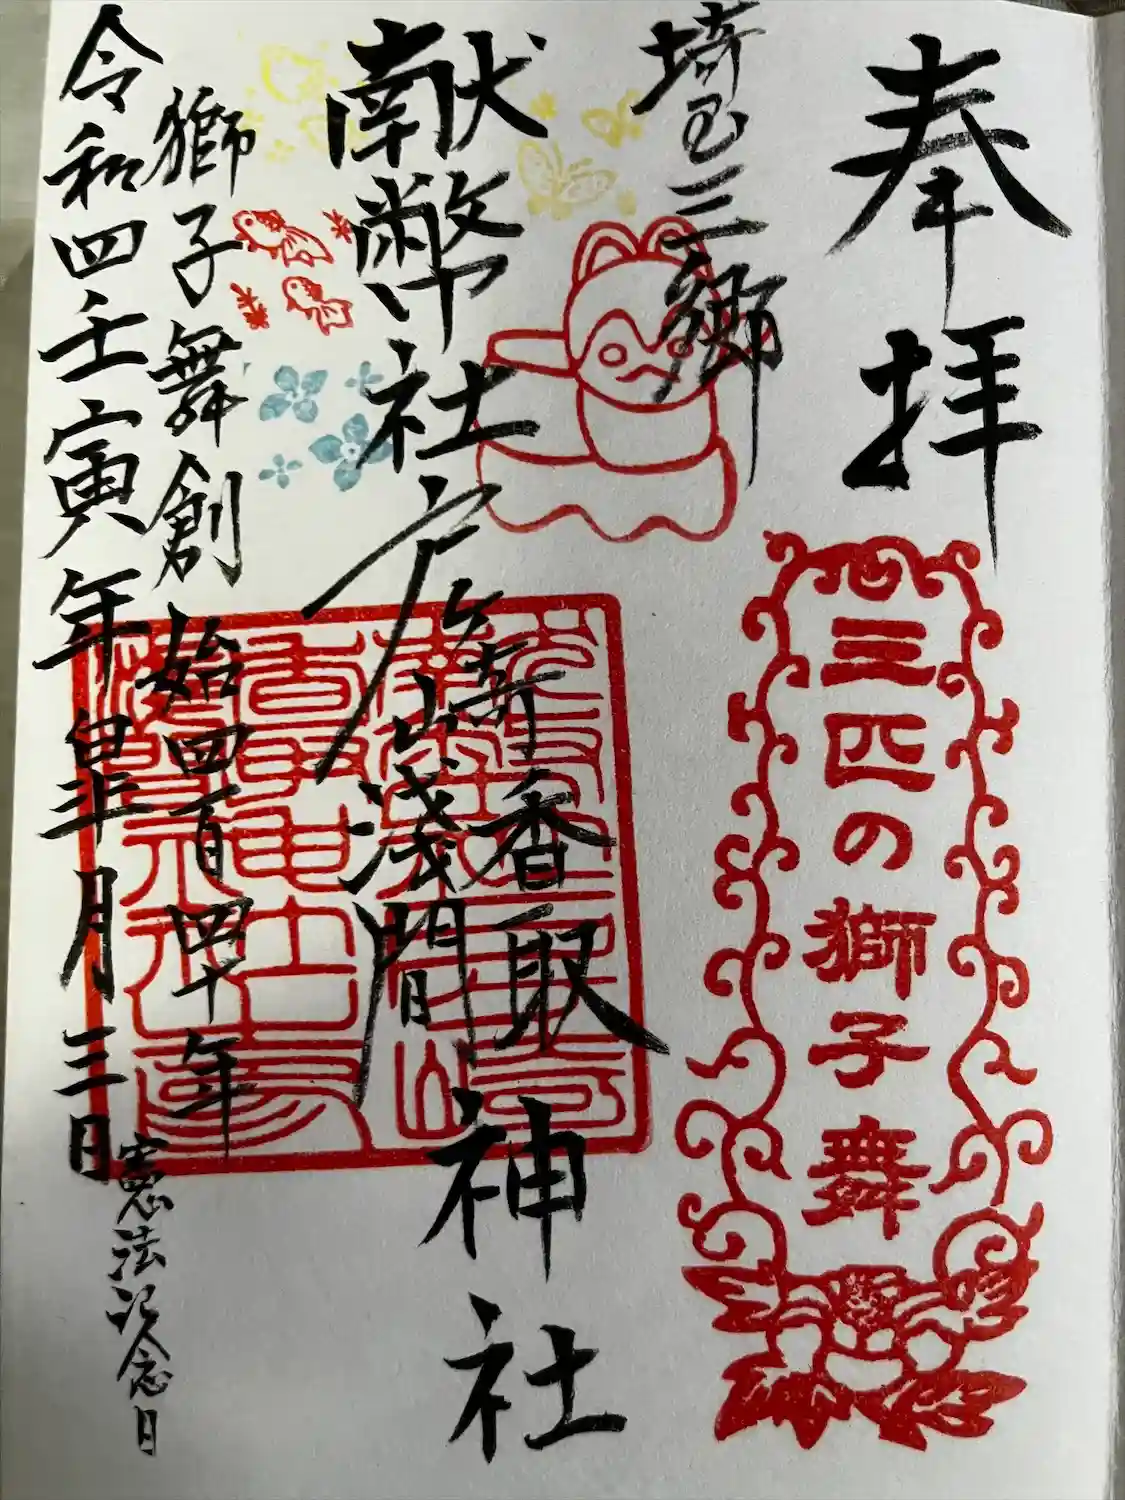 奉拝
三匹の獅子舞
埼玉三郷
献幣社戸ヶ崎香取
浅間
神社
獅子舞創始四百四十年
令和四壬寅年皐月三日
憲法記念日